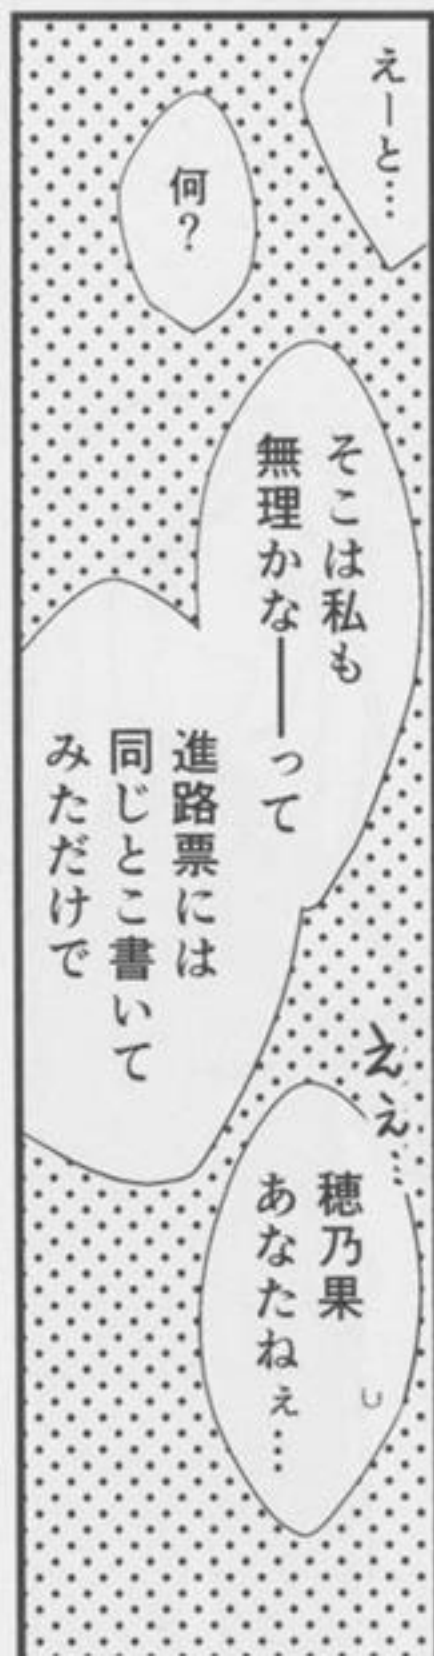 えーと…
何？
そこは私も
無理かな――って
進路票には
同じとこ書いて
みただけで
ええ…
穂乃果
あなたねぇ…